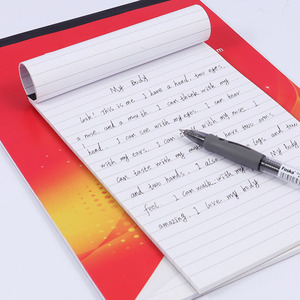 My Body
look! This is me. I have a head, two eyes,
a nose, and a mouth. I can think with my
head. I can see with my eyes. I can hear
with my ears. I can with my nose. I
can taste with my have two arms
and two hands. I also legs and two
feet. I can walk with my My body
amazing. I love my body